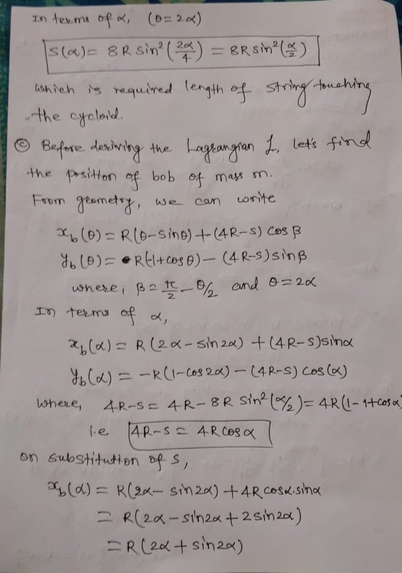 In terms of α, (θ=2α)
S(α)= 8R sin²(2α/4) = 8R sin²(α/2)
which is required length of string touching
the cycloid.
ⓒ Before deriving the Lagrangian L, let's find
the position of bob of mass m.
From geometry, we can write
x_b(θ) = R(θ-sinθ)+(4R-s) cos β
y_b(θ) = R(-1+cosθ)-(4R-s) sinβ
where, β = π/2 - θ/2 and θ=2α
In terms of α,
x_b(α) = R(2α-sin2α) + (4R-s)sinα
y_b(α) = -R(1-cos2α)-(4R-s) cos(α)
where, 4R-s = 4R-8R sin²(α/2) = 4R(1-1+cosα)
i.e 4R-s = 4R cosα
on substitution of s,
x_b(α) = R(2α-sin2α)+4R cosα.sinα
= R(2α-sin2α+2sin2α)
= R(2α+sin2α)